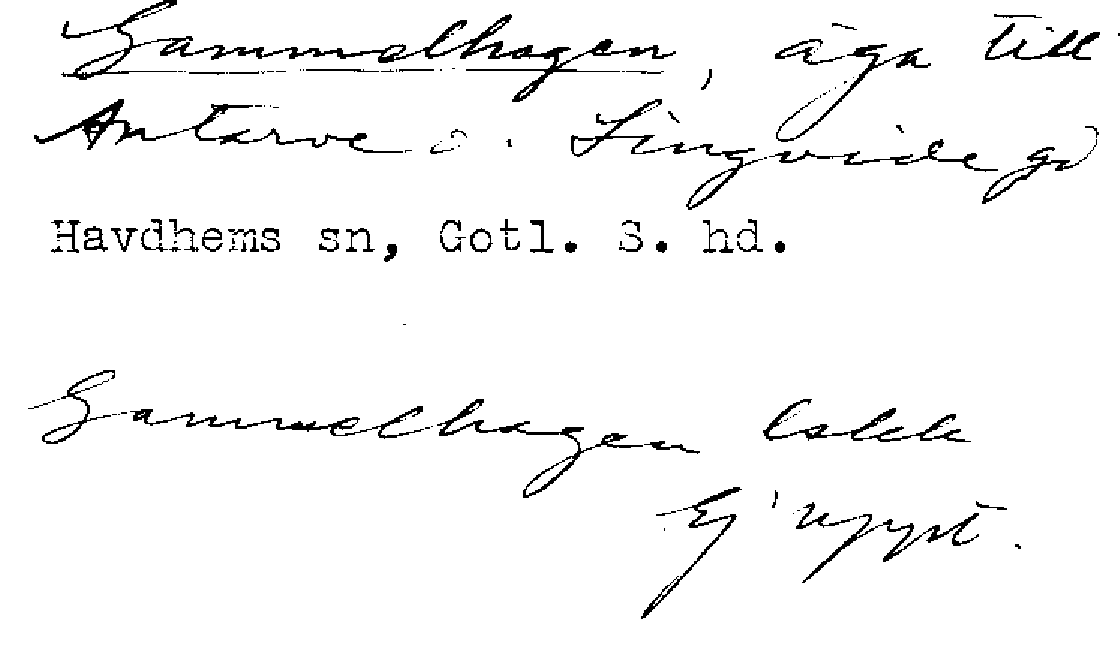 Gammelhagen, äga till
Antarve o. Lingvide gd
Havdhems sn, Gotl. S. hd.
Gammelhagen
Ej uppt.